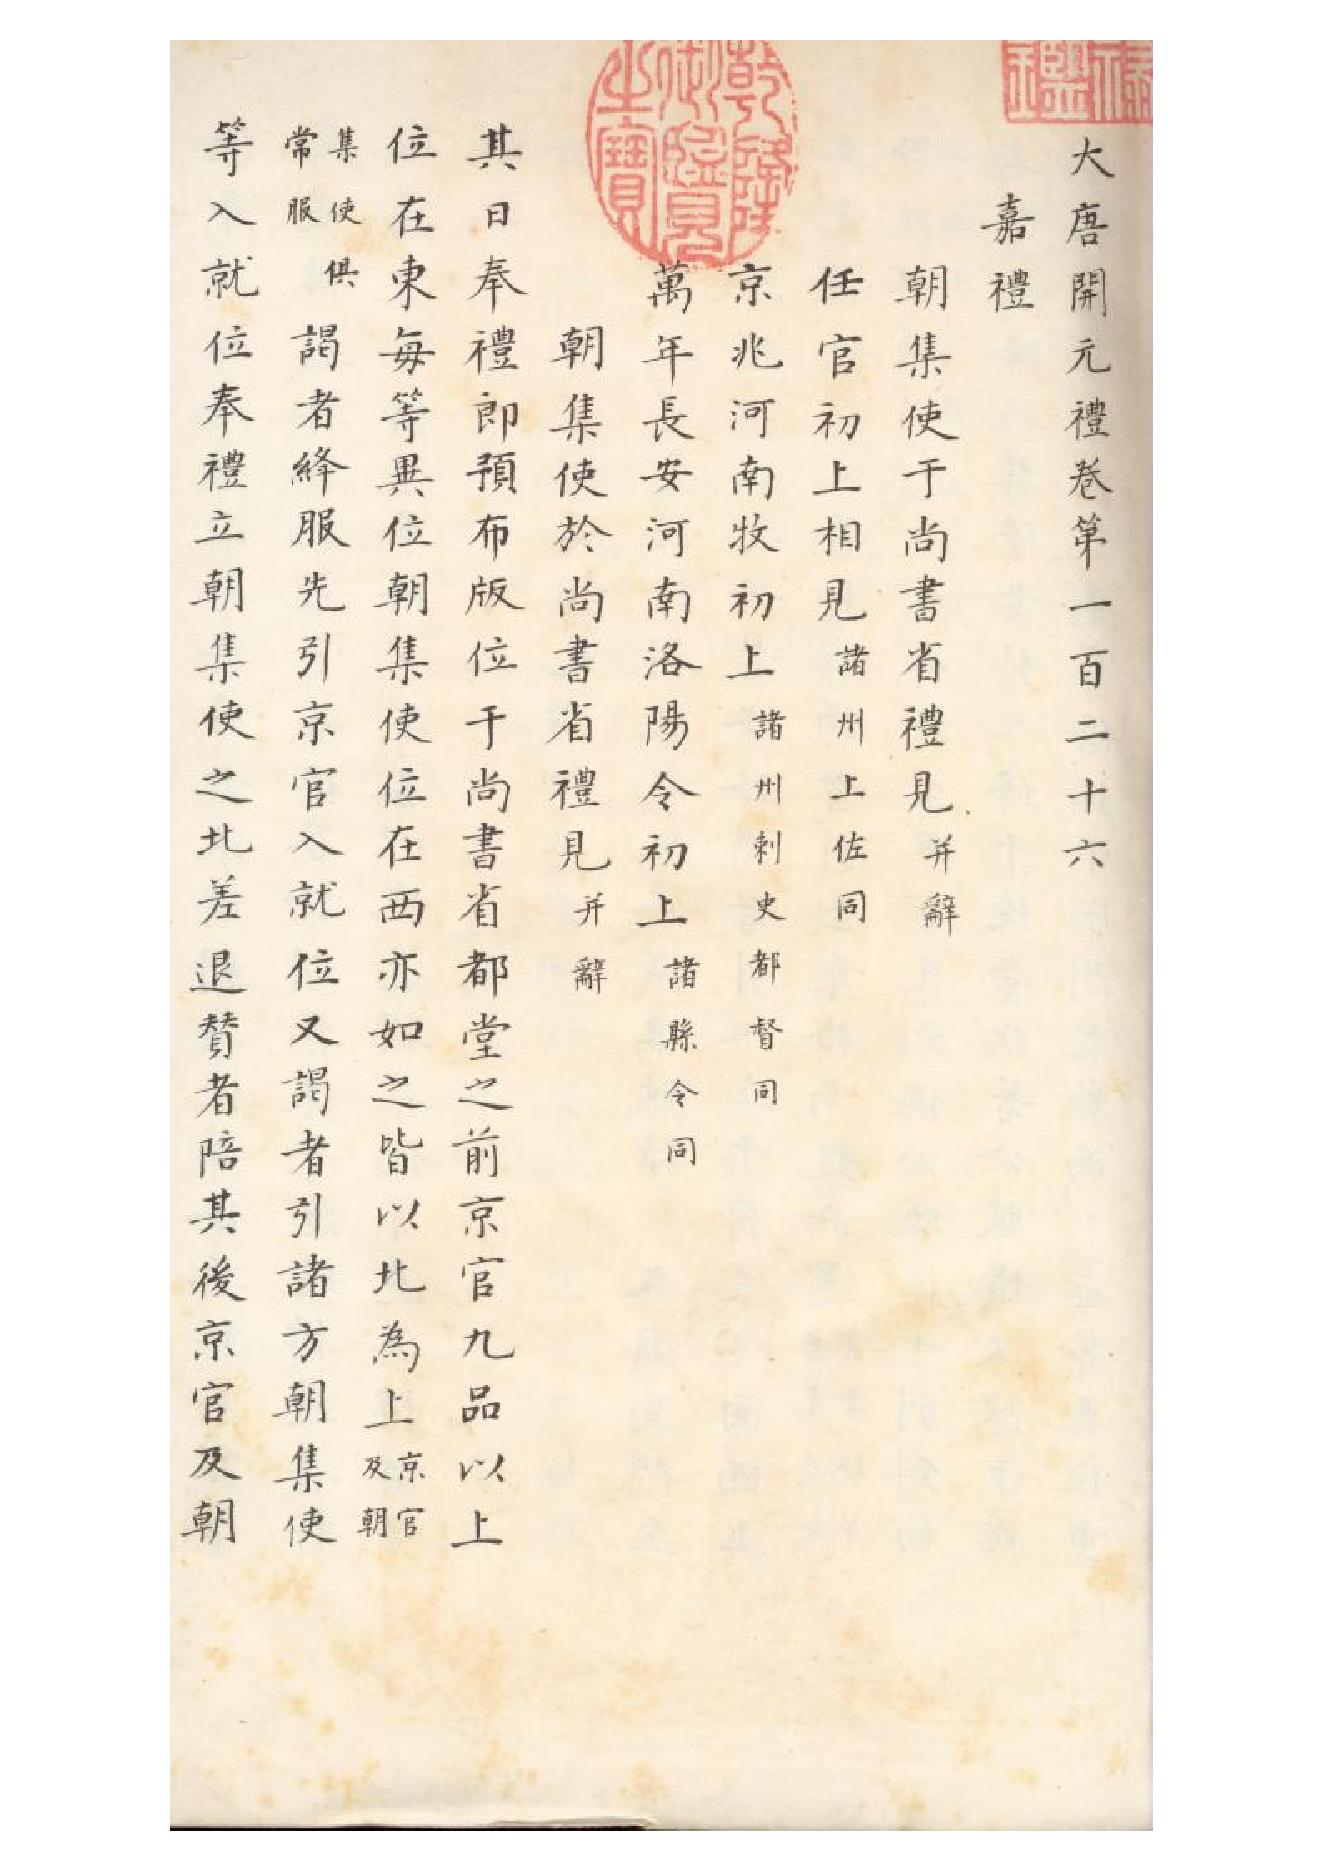 大唐開元禮卷第一百二十六
嘉禮
朝集使于尚書省禮見并辭
任官初上相見諸州上佐同
京兆河南牧初上諸州刺史都督同
萬年長安河南洛陽令初上諸縣令同
朝集使於尚書省禮見并辭
其日奉禮郎預布版位于尚書省都堂之前京官九品以上
位在東每等異位朝集使位在西亦如之皆以北為上京官及朝
集使俱常服謁者絳服先引京官入就位又謁者引諸方朝集使
等入就位奉禮立朝集使之北差退贊者陪其後京官及朝
乾隆御覽之寶